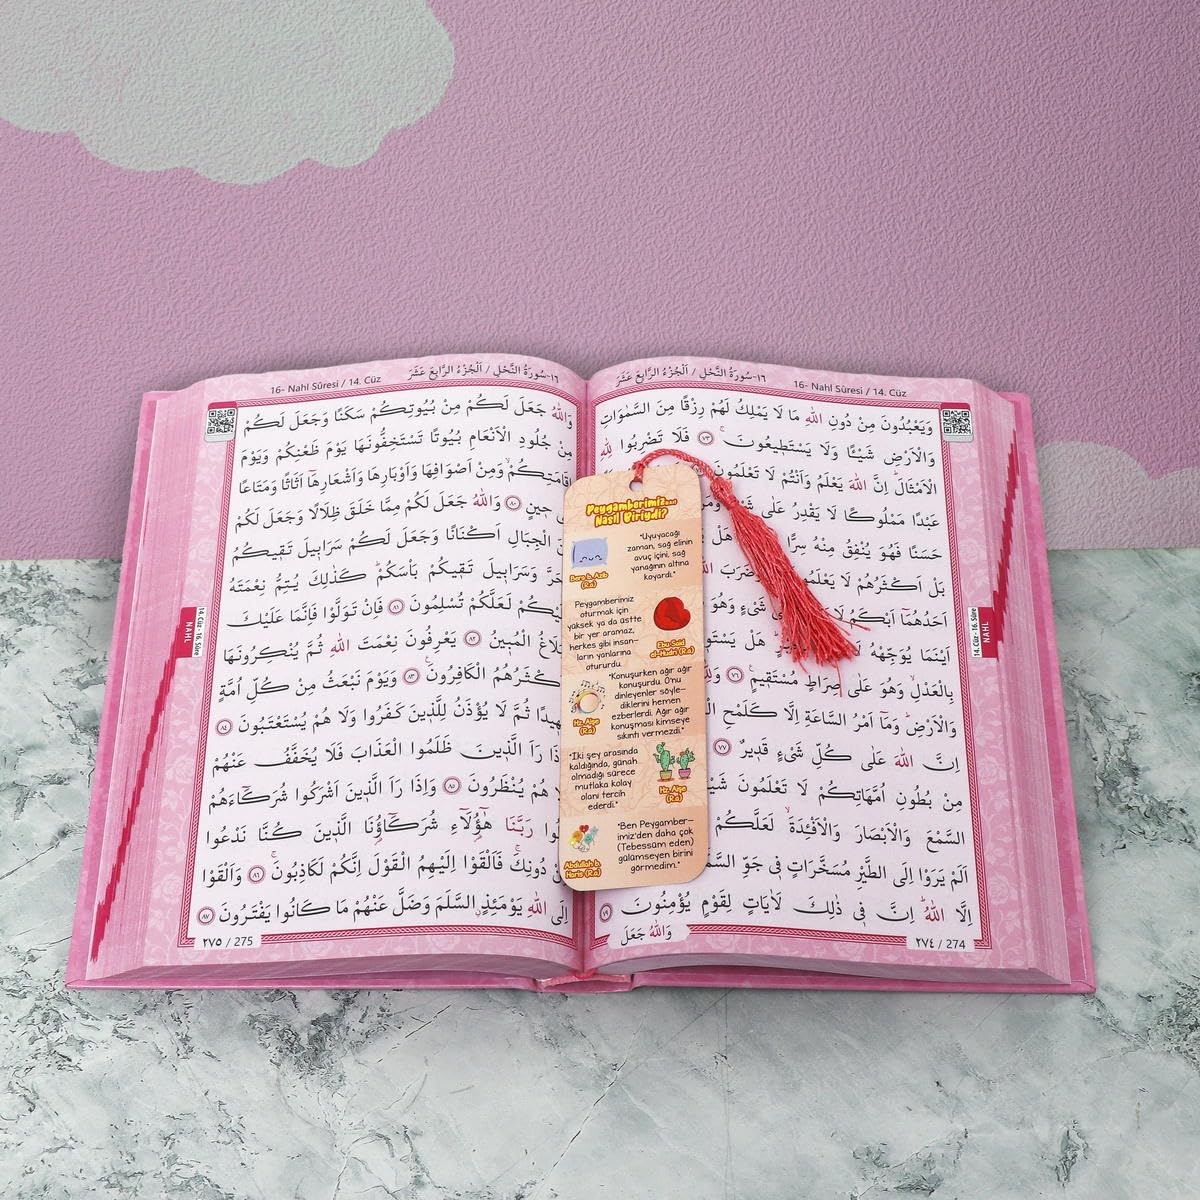 ١٦-سُورَةُ النَّحْلِ / اَلْجُزْءُ الرَّابِعَ عَشَرَ
16- Nahl Sûresi / 14. Cüz
وَيَعْبُدُونَ مِنْ دُونِ اللّٰهِ مَا لَا يَمْلِكُ لَهُمْ رِزْقًا مِنَ السَّمٰوَاتِ
وَالْاَرْضِ شَيْـًٔا وَلَا يَسْتَطِيعُونَ ۚ ﴿٧٣﴾ فَلَا تَضْرِبُوا لِلّٰهِ
الْاَمْثَالَ اِنَّ اللّٰهَ يَعْلَمُ وَاَنْتُمْ لَا تَعْلَمُونَ
عَبْدًا مَمْلُوكًا لَا يَقْدِرُ عَلٰى شَيْءٍ
حَسَنًا فَهُوَ يُنْفِقُ مِنْهُ سِرًّا هَلْ
بَلْ اَكْثَرُهُمْ لَا يَعْلَمُونَ
اَحَدُهُمَٓا اَبْكَمُ لَا شَيْءٍ وَهُوَ
اَيْنَمَا يُوَجِّهْهُ لَا هَلْ يَسْتَوِي
بِالْعَدْلِۙ وَهُوَ عَلٰى صِرَاطٍ مُسْتَقِيمٍ۟ ﴿٧٦﴾
وَالْاَرْضِۜ وَمَٓا اَمْرُ السَّاعَةِ اِلَّا كَلَمْحِ
اِنَّ اللّٰهَ عَلٰى كُلِّ شَيْءٍ قَدِيرٌ ﴿٧٧﴾
مِنْ بُطُونِ اُمَّهَاتِكُمْ لَا تَعْلَمُونَ
السَّمْعَ وَالْاَبْصَارَ وَالْاَفْـِٔدَةَۙ لَعَلَّكُمْ
اَلَمْ يَرَوْا اِلَى الطَّيْرِ مُسَخَّرَاتٍ فِي جَوِّ
اِلَّا اللّٰهُۜ اِنَّ فِي ذٰلِكَ لَاٰيَاتٍ لِقَوْمٍ يُؤْمِنُونَ ﴿٧٩﴾
وَاللّٰهُ جَعَلَ
٢٧٤ / 274
14. Cüz - 16. Sûre
NAHL
١٦-سُورَةُ النَّحْلِ / اَلْجُزْءُ الرَّابِعَ عَشَرَ
16- Nahl Sûresi / 14. Cüz
وَاللّٰهُ جَعَلَ لَكُمْ مِنْ بُيُوتِكُمْ سَكَنًا وَجَعَلَ لَكُمْ
مِنْ جُلُودِ الْاَنْعَامِ بُيُوتًا تَسْتَخِفُّونَهَا يَوْمَ ظَعْنِكُمْ وَيَوْمَ
اِقَامَتِكُمْۙ وَمِنْ اَصْوَافِهَا وَاَوْبَارِهَا وَاَشْعَارِهَٓا اَثَاثًا وَمَتَاعًا
حِينٍ ﴿٨٠﴾ وَاللّٰهُ جَعَلَ لَكُمْ مِمَّا خَلَقَ ظِلَالًا وَجَعَلَ لَكُمْ
الْجِبَالِ اَكْنَانًا وَجَعَلَ لَكُمْ سَرَابِيلَ تَقِيكُمُ
وَسَرَابِيلَ تَقِيكُمْ بَأْسَكُمْۜ كَذٰلِكَ يُتِمُّ نِعْمَتَهُ
لَعَلَّكُمْ تُسْلِمُونَ ﴿٨١﴾ فَاِنْ تَوَلَّوْا فَاِنَّمَا عَلَيْكَ
الْمُبِينُ ﴿٨٢﴾ يَعْرِفُونَ نِعْمَتَ اللّٰهِ ثُمَّ يُنْكِرُونَهَا
الْكَافِرُونَ۟ ﴿٨٣﴾ وَيَوْمَ نَبْعَثُ مِنْ كُلِّ اُمَّةٍ
ثُمَّ لَا يُؤْذَنُ لِلَّذِينَ كَفَرُوا وَلَا هُمْ يُسْتَعْتَبُونَ ﴿٨٤﴾
رَاَ الَّذِينَ ظَلَمُوا الْعَذَابَ فَلَا يُخَفَّفُ عَنْهُمْ
هُمْ يُنْظَرُونَ ﴿٨٥﴾ وَاِذَا رَاَ الَّذِينَ اَشْرَكُوا شُرَكَٓاءَهُمْ
رَبَّنَا هٰٓؤُ۬لَٓاءِ شُرَكَٓاؤُ۬نَا الَّذِينَ كُنَّا نَدْعُوا
دُونِكَۚ فَاَلْقَوْا اِلَيْهِمُ الْقَوْلَ اِنَّكُمْ لَكَاذِبُونَۚ ﴿٨٦﴾ وَاَلْقَوْا
اِلَى اللّٰهِ يَوْمَئِذٍۨ السَّلَمَ وَضَلَّ عَنْهُمْ مَا كَانُوا يَفْتَرُونَ ﴿٨٧﴾
٢٧٥ / 275
14. Cüz - 16. Sûre
NAHL
Peygamberimiz
Nasıl Biriydi?
"Uyuyacağı
zaman, sağ elinin
avuç içini, sağ
yanağının altına
koyardı."
Bera b. Azib
(R.a)
Peygamberimiz
oturmak için
yüksek ya da üstte
bir yer aramaz,
herkes gibi insan-
ların yanlarına
otururdu.
Ebu Said
el-Hudri (R.a)
"Konuşurken ağır ağır
konuşurdu. O'nu
dinleyenler söyle-
diklerini hemen
ezberlerdi. Ağır ağır
konuşması kimseye
sıkıntı vermezdi."
Hz. Aişe
(R.a)
"İki şey arasında
kaldığında, günah
olmadığı sürece
mutlaka kolay
olanı tercih
ederdi."
Hz. Aişe
(R.a)
"Ben Peygamber-
imiz'den daha çok
(Tebessüm eden)
gülümseyen birini
görmedim."
Abdullah b.
Haris (R.a)